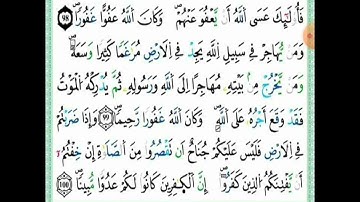 فَأُوْلَٰٓئِكَ عَسَى اَللَّهُ أَنْ يَّعْفُوَ عَنْهُمْ وَكَانَ اَللَّهُ عَفُوّاً غَفُوراً 98
وَمَنْ يُّهَاجِرْ فِے سَبِيلِ اِللَّهِ يَجِدْ فِے اِلَارْضِ مُرَٰغَماً كَثِيراً وَسَعَةً
وَمَنْ يَّخْرُجْ مِنۢ بَيْتِهِۦ مُهَاجِراً اِلَى اَللَّهِ وَرَسُولِهِۦ ثُمَّ يُدْرِكْهُ اُلْمَوْتُ
فَقَدْ وَقَعَ أَجْرُهُۥ عَلَى اَللَّهِ وَكَانَ اَللَّهُ غَفُوراً رَّحِيماً 99 وَإِذَا ضَرَبْتُمْ
فِے اِلَارْضِ فَلَيْسَ عَلَيْكُمْ جُنَاحٌ اَن تَقْصُرُواْ مِنَ اَلصَّلَوٰةِ إِنْ خِفْتُمُۥٓ
أَنْ يَّفْتِنَكُمُ اُلذِينَ كَفَرُوٓاْ إِنَّ اَلْكَٰفِرِينَ كَانُواْ لَكُمْ عَدُوّاً مُّبِيناً 100